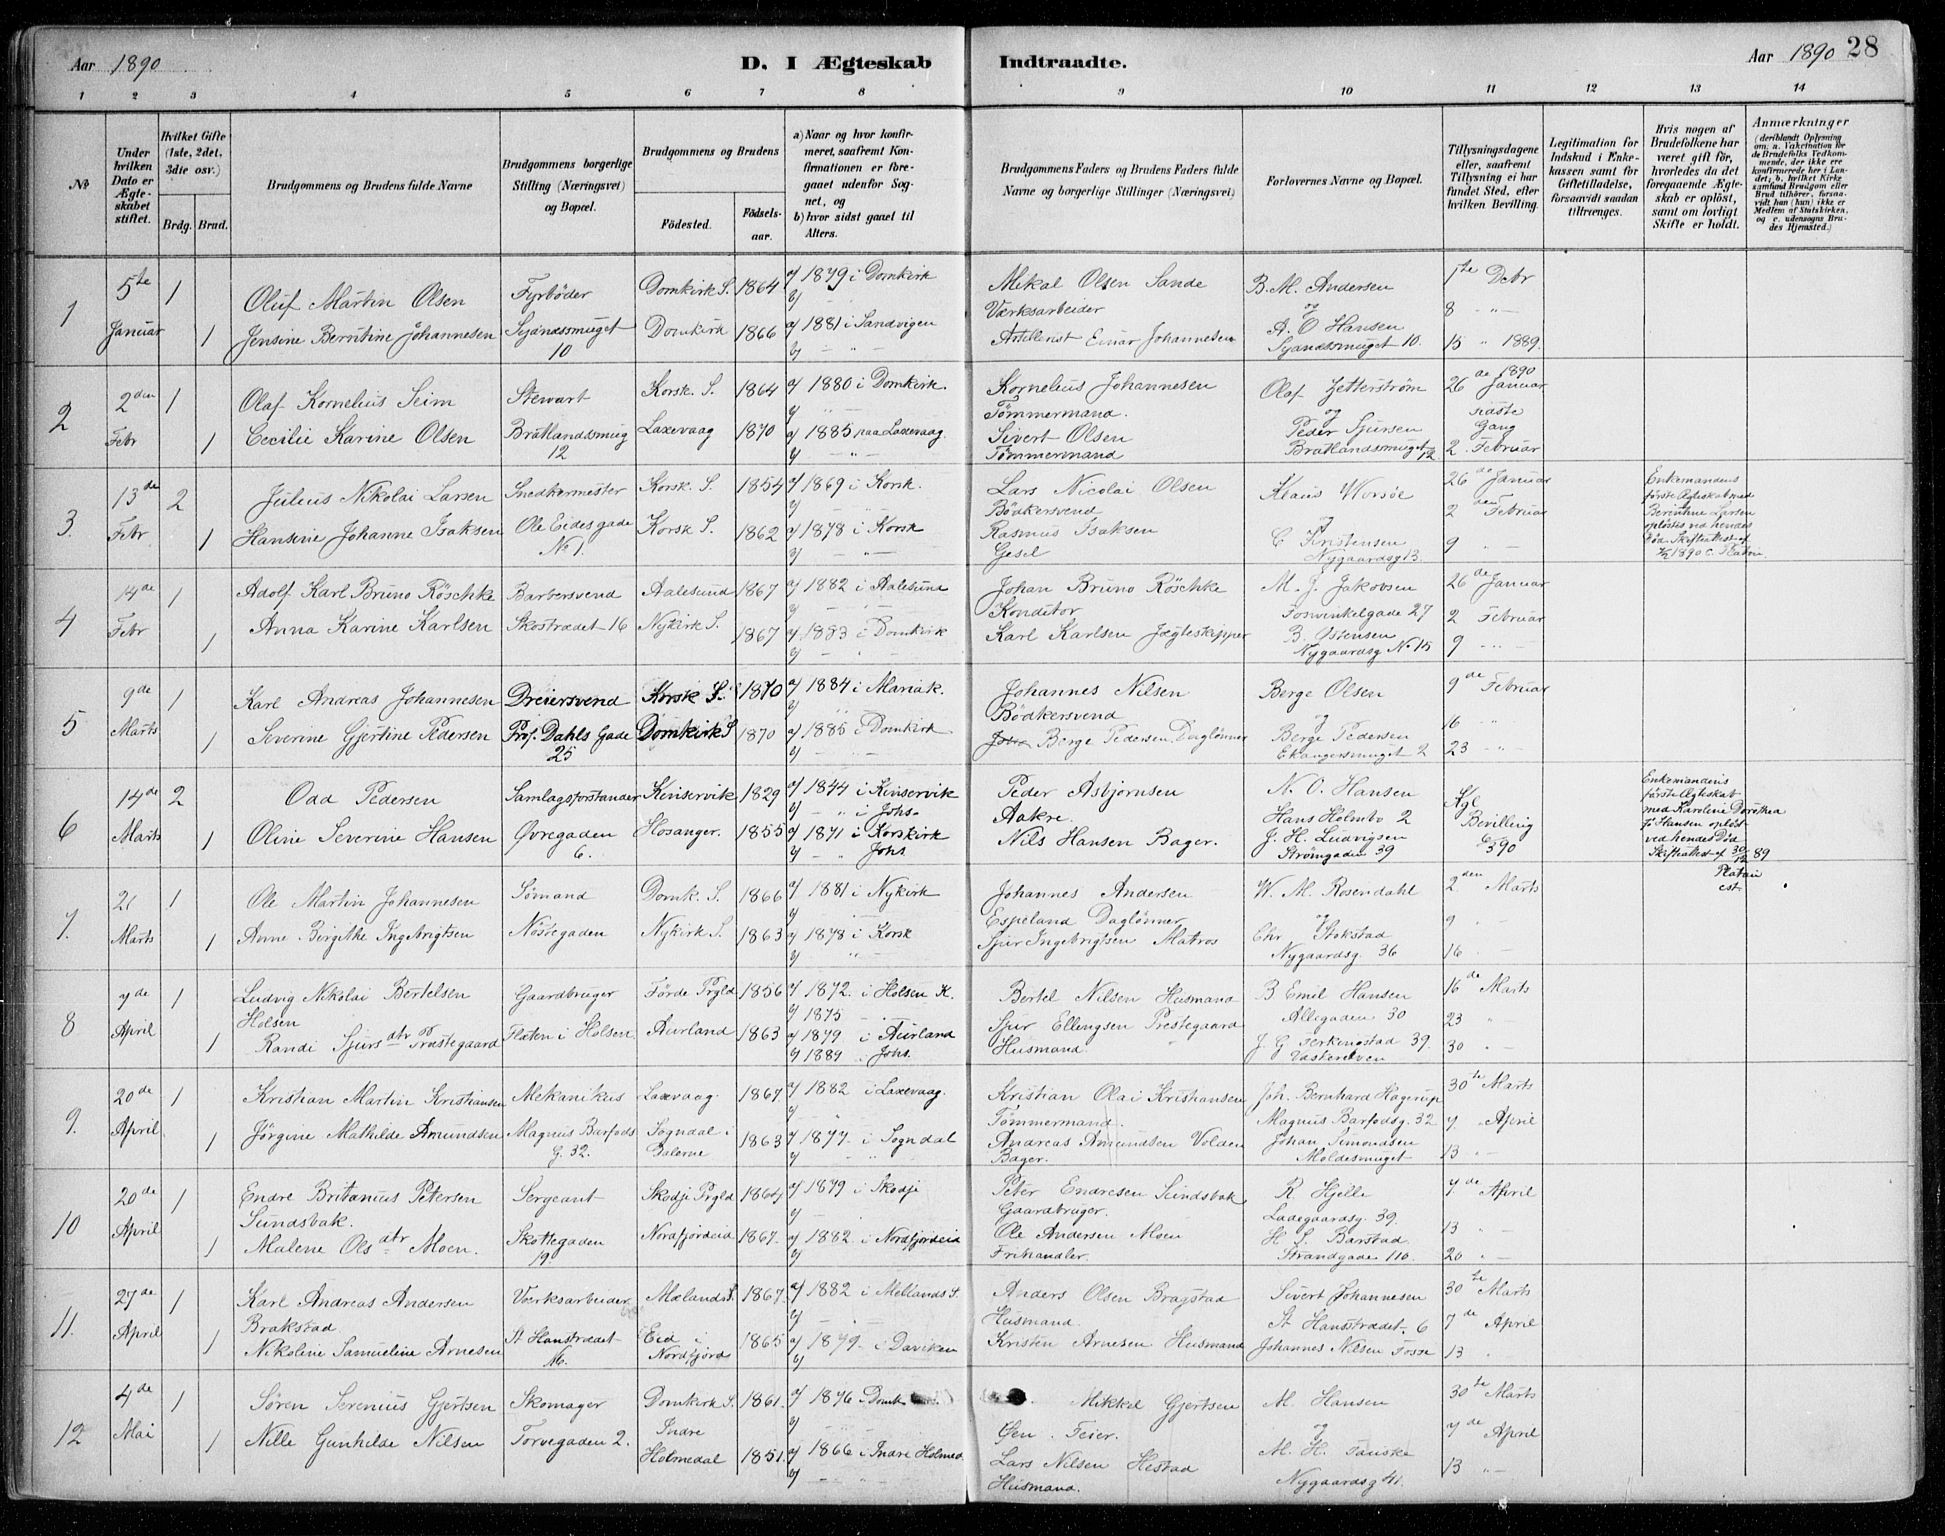 Aar 1890
D. I Ægteskab
Indtraadte.
Aar 1890 28
1 2 3 4 5 6 7 8 9 10 11 12 13 14
No
Under hvilken Dato er Ægteskabet stiftet.
Hvilket Gifte (1ste, 2det, 3die osv.)
Brdg. Brud.
Brudgommens og Brudens fulde Navne
Brudgommens borgerlige Stilling (Næringsvei) og Bopæl.
Brudgommens og Brudens
Fødested. Fødselsaar.
a) Naar og hvor konfirmeret, saafremt Konfirmationen er foregaaet udenfor Sognet, og
b) hvor sidst gaaet til Alters.
Brudgommens Faders og Brudens Faders fulde Navne og borgerlige Stillinger (Næringsvei)
Forlovernes Navne og Bopæl.
Tillysningsdagene eller, saafremt Tillysning ei har fundet Sted, efter hvilken Bevilling.
Legitimation for Indskud i Enkekassen samt for Giftetilladelse, forsaavidt saadan tiltrænges.
Hvis nogen af Brudefolkene har været gift før, hvorledes da det foregaaende Ægteskab er opløst, samt om lovligt Skifte er holdt.
Anmærkninger
(deriblandt Oplysning om: a. Vakcination for de Brudefolks Vedkommende, der ikke ere konfirmerede her i Landet; b. hvilket Kirkesamfund Brudgom eller Brud tilhører, forsaavidt han (hun) ikke er Medlem af Statskirken, og c. udensogns Brudes Hjemsted.)
1 5te Januar 1 Oluf Martin Olsen Fyrbøder Domkirk S. 1864 a) 1879 i Domkirk Mikal Olsen Sande B. M. Andersen 1ste Dcbr
b) Værksarbeider og 8 " —
1 Jensine Berntine Johannesen 10 Domkirk 1866 a) 1881 i Sandvigen Artillerist Einar Johannesen A. O Hansen 15 " 1889.
2 2den Febr 1 Olaf Kornelius Seim Stewart Korsk. S. 1864 a) 1880 i Domkirk. Kornelius Johannesen Olaf Zetterstrøm 26de Januar 1890
Tømmermand. og næste Gang
1 Cecilie Karine Olsen Bratlandssmug 12 Laxevaag 1870 a) 1885 paa Laxevaag. Sivert Olsen Peder Sjursen
Tømmermand Bratlandssmuget 12 2 Februar
3. 13de Febr 2 Julius Nikolai Larsen Snedkermester Korsk. S. 1854 a) 1869 i Korsk. Lars Nicolai Olsen Klaus Worsøe 26de Januar Enkemandens første Ægteskab med Berinthine Larsen opløstes ved hendes Død
Bødkersvend og 2den Februar
1 Hansine Johanne Isaksen Ole Eides gade No 1. Korsk S. 1862 a) 1878 i Korsk Rasmus Isaksen C Kristensen 9 " —
Nygaardsg 13.
4 14de Febr 1 Adolf Karl Bruno Röschke Barbersvend Aalesund 1867 a) 1882 i Aalesund Johan Bruno Röschke M. J. Jakobsen 26de Januar
Konditor Fosvinkelgade 27 2 Februar
1 Anna Karine Karlsen Skostrædet 16 Nykirk S. 1867 a) 1883 i Domkirk Karl Karlsen Jægteskipper B. Ostensen
Nygaardsg No 15 9 " —
5 9de Marts 1 Karl Andreas Johannesen Dreiersvend Korsk S. 1870 a) 1884 i Mariak. Johannes Nilsen Berge Olsen 9de Februar
Bødkersvend og 16 "
1 Severine Gjertine Pedersen Prof. Dahls Gade 25 Domkirk S 1870 a) 1885 i Domkirk Berge Pedersen Daglønner Berge Pedersen 23 " —
Ekangersmuget 2
6 14de Marts 2 Odd Pedersen Samlagsforstander Kinservik 1829 a) 1844 i Kinservik Peder Asbjørnsen N. O. Hansen Kgl Enkemandens første Ægteskab med Karoline Dorothea f. Hansen opløst ved hendes Død
b) — " i Johs. Aakre. Hans Holmbo 2 Bevilling
1 Oline Severine Hansen Øvregaden 6. Hosanger. 1855 a) 1871 i Korskirk Nils Hansen Bager. J. H. Ludvigsen Skifteattest af 30/12 89
b) — " Johs Strømgaden 39 Platou cst.
7. 21 Marts 1 Ole Martin Johannesen Sømand Domk. S. 1866 a) 1881 i Nykirk Johannes Andersen W. M. Rosendahl 2den Marts
Espeland Daglønner og 9 "
1 Anne Birgithe Ingebrigtsen Nøstegaden Nykirk S. 1863 a) 1878 i Korsk Sjur Ingebrigtsen Matros Chr Stokstad
Nygaardsg. 36 16 —
8 7de April 1 Ludvig Nikolai Bertelsen Holsen Gaardbruger Förde Prgld 1856 a) 1872. i Holsen K. Bertel Nilsen Husmand B Emil Hansen 16de Marts
b) 1875 Allegaden 30
1 Randi Sjursdtr Præstegaard Flaten i Holsen Aurland 1863 a) 1879 i Aurland Sjur Ellengsen Prestegaard 23 "
b) 1889 i Johs. Husmand. J. G Terkengstad 39. 30 " —
9. 20de April 1 Kristian Martin Kristiansen Mekanikus Laxevaag. 1867. a) 1882 i Laxevaag. Kristian Olai Kristiansen Joh. Bernhard Hagerup 30te Marts
Tømmermand. Magnus Barfodsg. 32 7. April
1 Jørgine Mathilde Amundsen Magnus Barfods G. 32. Sogndal i Dalerne 1863 a) 1877. i Sogndal Andreas Amundsen Volden Johan Simondsen
Bager. Moldesmuget 13 " —
10 20de April 1 Endre Britanius Petersen Sundsbak. Sergeant Skodje Prgld 1864 a) 1879 i Skodje Peter Endresen Sundsbak R Hjelle 7de April
Gaardbruger. Ladegaardsg. 39. 13 " —
1 Malene Olsdtr Moen. Skottegaden 19. Nordfjordeid 1867. a) 1882. i Nordfjordeid Ole Andersen Moen H. S. Barstad
Frihandler. Strandgade 110. 20 " —
11. 27de April 1 Karl Andreas Andersen Brakstad Værksarbeider Mælands S. 1867. a) 1882 i Mellands S. Anders Olsen Bragstad Sivert Johannesen 30te Marts
Husmand. St Hansstrædet. 6 7de April
1 Nikoline Samueline Arnesen St Hanstrædet Eid i Nordfjord 1865 a) 1879. i Daviken Kristen Arnesen Husmand Johannes Nilsen Fosse 13 "
12 4de Mai 1 Søren Serenius Gjertsen Skomager Domkirk S. 1861. a) 1876 i Domk Mikkel Gjertsen M. Hansen 30te Marts
Feier. og 7de April
1 Nille Gunhilde Nilsen Torvegaden 2. Indre Holmedal 1851. a) 1866 i Indre Holmed. Lars Nilsen Hestad M. H. Fauske 13 " —
Husmand. Nygaardsg 41.